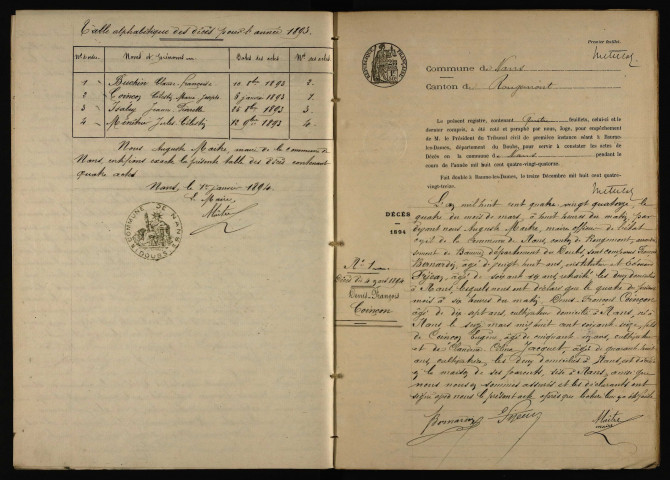 Table alphabétique des décès pour l'année 1893.
Nos d'ordre Noms et prénoms Dates des actes Nos des actes
1 1893 2
2 Coinçon Célestin Marie Joseph 8 janvier 1893 1
3 Isabey Jeanne 1893 3
4 Ménétrier Jules Célestin 12 9bre 1893 4
Nous Auguste Maitre, maire de la commune de
Nans certifions exacte la présente table des décès contenant
quatre actes
Nans, le 1er janvier 1894.
Le Maire
Maitre
COMMUNE DE NANS
(DOUBS)
Premier feuillet.
Commune de Nans
Canton de Rougemont
Le présent registre, contenant quatre feuillets, celui-ci et le
dernier compris, a été coté et paraphé par nous, Juge, pour empêchement
de M. le Président du Tribunal civil de première instance séant à Baume-
les-Dames, département du Doubs, pour servir à consister les actes de
Décès en la commune de Nans pendant le
cours de l'année mil huit cent quatre-vingt-quatorze.
Fait double à Baume-les-Dames, le treize Décembre mil huit cent quatre-
vingt-treize.
DÉCÈS
1894
No 1
Décès du 4 mars 1894
Denis-François
Coinçon
L'an mil huit cent quatre vingt quatorze le
quatre du mois de mars, à huit heures du matin, par
devant nous Auguste Maitre, maire officier de l'état
civil de la Commune de Nans, canton de Rougemont, arrondis-
sement de Baume, département du Doubs, sont comparus
Bernardin, âgé de vingt huit ans, instituteur et
âgé de soixante ans, les deux domiciliés
à Nans, lesquels nous ont déclaré que le quatre du présent
mois à six heures du matin, Denis-François Coinçon,
âgé de dix sept ans, cultivateur domicilié à Nans, né à
Nans le mars mil huit cent soixante seize, fils
de Coinçon Eugène, âgé de cinquante ans, cultivateur
et de Jacquet, âgée de quarante huit
ans, cultivatrice, les deux domiciliés à Nans, est décédé
en la maison de ses parents, sise à Nans, ainsi que
nous nous en sommes assurés et les déclarants ont
signé avec nous le présent acte après que lecture leur en a été faite
Bernardin Maitre
maire